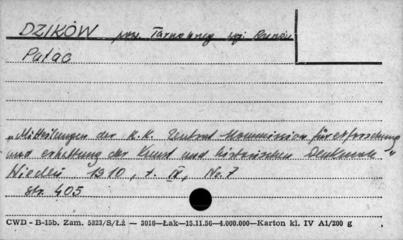 DZIKÓW pow. Tarnobrzeg woj. Rzeszów
Pałac
"Mitteilungen der K.K. Zentral Kommission für erforschung
und erhaltung der Kunst und historischen Denkmale"
Wiedeń 1910, t. IX, No. 7
str. 405
CWD - B-15b. Zam. 5323/S/Łź — 3016—Łak—15.11.56—4.000.000—Karton kl. IV A1/200 g